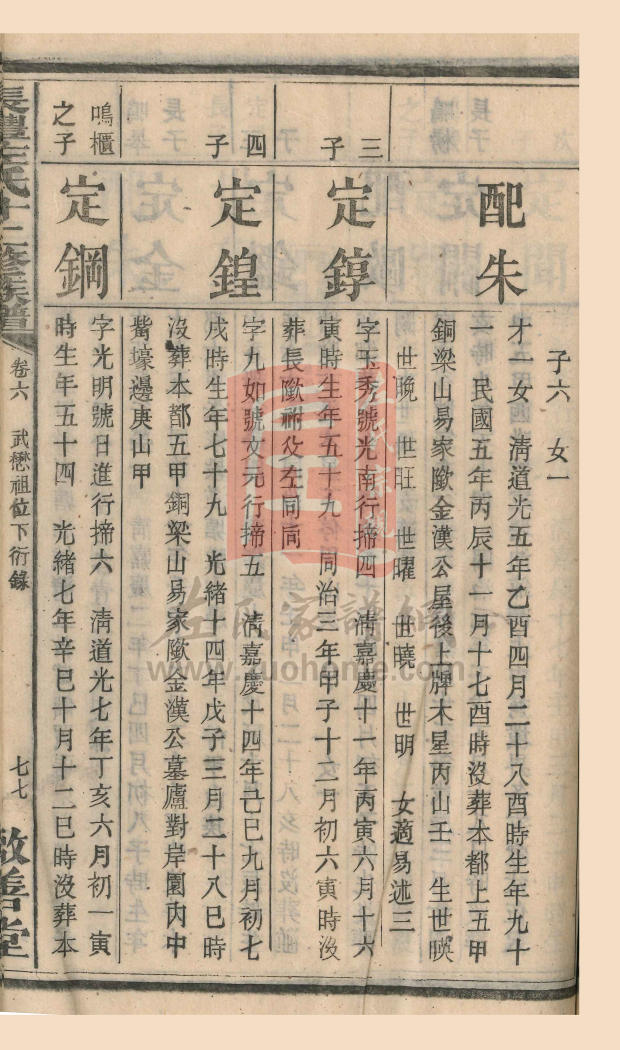 子六 女一
配朱
才一女 清道光五年乙酉四月二十八酉時生年九十
一 民國五年丙辰十一月十七酉時沒葬本都上五甲
銅梁山易家歐金漢公屋後上牌木星丙山壬 生世暎
世晚 世旺 世曜 世曉 世明 女適易述三
三子
定錞
字玉秀號光南行揥四 清嘉慶十一年丙寅六月十六
寅時生年五十九 同治三年甲子十二月初六寅時沒
葬長歐祔父左同向
四子
定鍠
字九如號文元行揥五 清嘉慶十四年己巳九月初七
戌時生年七十九 光緒十四年戊子三月二十八巳時
沒葬本都五甲銅梁山易家歐金漢公墓廬對岸園內中
壕邊庚山甲
鳴櫃之子
定鋼
字光明號日進行揥六 清道光七年丁亥六月初一寅
時生年五十四 光緒七年辛巳十月十二巳時沒葬本
長灃左氏十二修族譜
卷六 武懋祖位下衍錄
七七
敦善堂
左氏家譜
www.zuohome.com